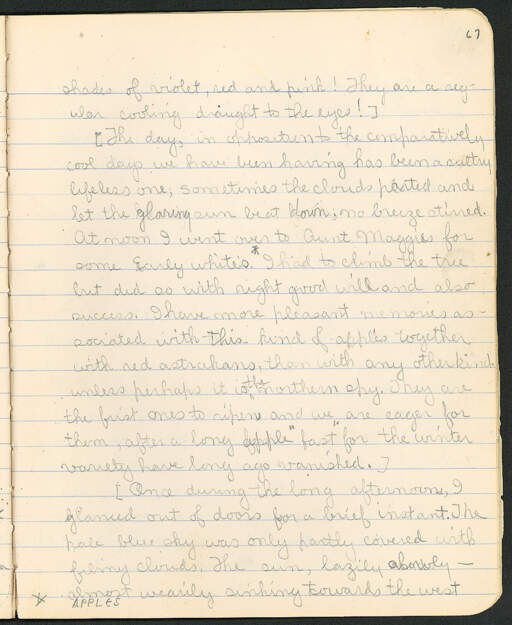 67
shades of violet, red and pink! They are a reg-
ular cooling draught to the eyes!]
[The day, in opposition to the comparatively
cool days we have been having has been a sultry
lifeless one; sometimes the clouds parted and
let the glaring sun beat down; no breeze stirred.
At noon I went over to Aunt Maggies for
some Early whites.* I had to climb the tree
but did so with right good will and also
success. I have more pleasant memories as-
sociated with this kind of apples together
with red astrakans, than with any other kind
unless perhaps it is the northern spy. They are
the first ones to ripen and we are eager for
them, after a long apple "fast" for the winter
variety have long ago vanished.]
[Once during the long afternoon, I
glanced out of doors for a brief instant. The
pale blue sky was only partly covered with
filmy clouds. The sun, lazily slowly —
almost wearily sinking towards the west
* APPLES